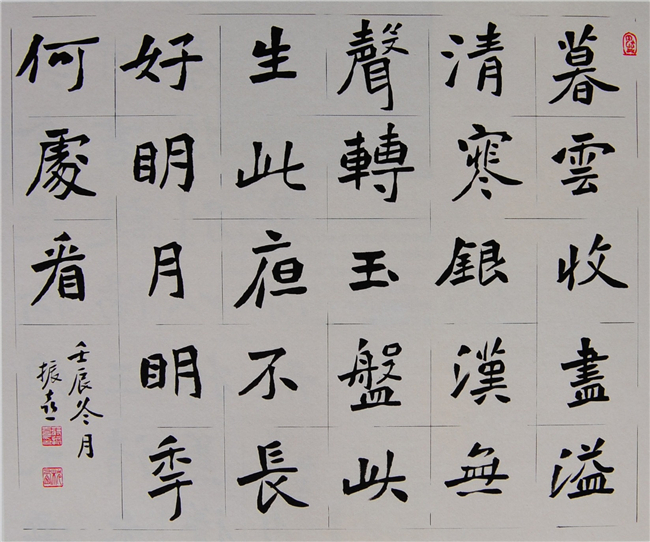 暮雲收盡溢
清寒銀漢無
聲轉玉盤此
生此夜不長
好明月明秊
何處看
壬辰冬月
振